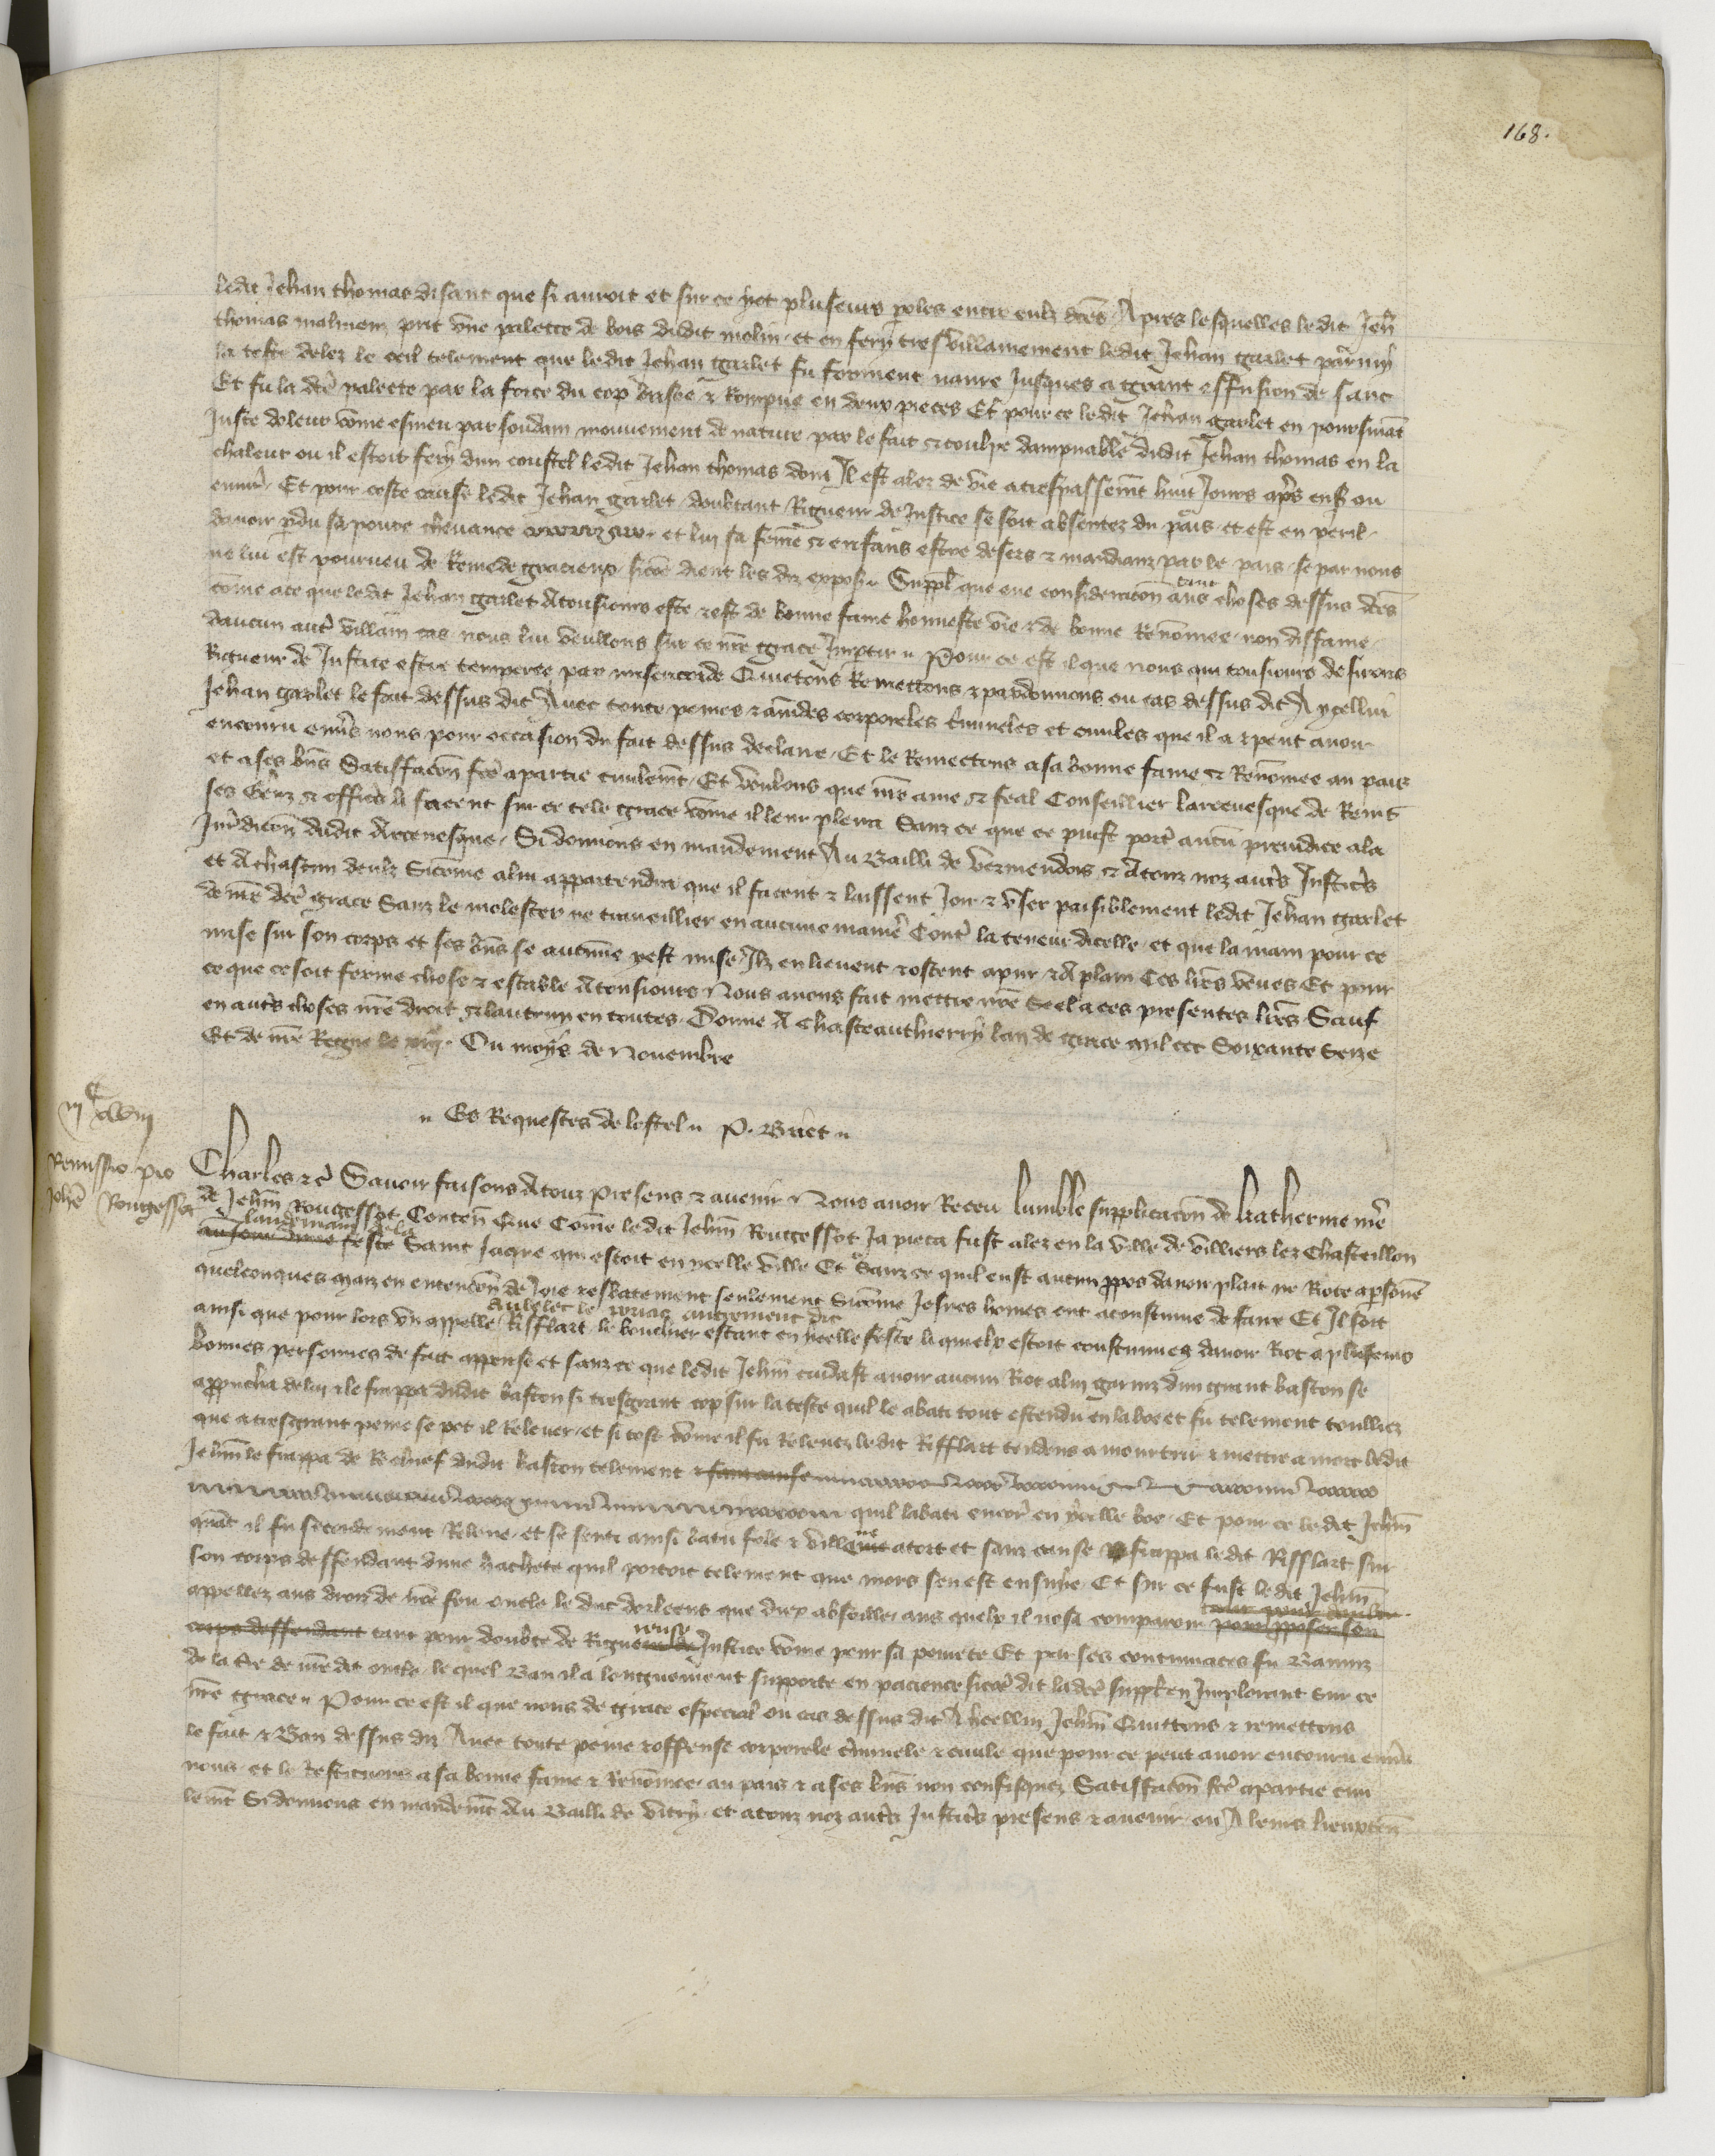 168.
ledit Jehan thomas disant que si auroit et sur ce yot pluseurs poles entre eulx dces Apres lesquelles ledit Jehñ
thomas malmeu prit vne palette de bois dudit molin et en fery tres villainement ledit Jehan garlet parmy
la teste delez le oeil telement que ledit Jehan garlet fu forment naure Jusques a grant effusion de sanc
Et fu la dce palette par la force du cop brisee & Rompue en deux pieces Et pour ce ledit Jehan garlet en poursuiãt
Juste doleur come esmeu par soudain mouuement de nature par le fait & coulpe dampnable dudit Jehan thomas en la
chaleur ou il estoit fery dun coustel ledit Jehan thomas dont Il est alez de vie a trespassemt huit Jours apres ens ou
enuir Et pour ceste cause ledit Jehan garlet doubtant Rigueur de Justice se soit absentez du pais et est en peril
dauoir pdu sa poure cheuance et lui sa feme & enfans estre desers & mandianz par le pais se par nous
ne lui est pourueu de Remede gracieux sicõe dient les diz expos Suppl que eue consideracõn aus choses dessus dces
tant
cõme ace que ledit Jehan garlet A tousiours este & est de bonne fame honneste vie & de bonne Renõmee non diffame
daucun autr villain cas nous lui veullons sur ce nre grace Impartir Pour ce est il que nous qui tousiours desirons
Rigueur de Justice estre temperee par misericorde Quictons Remettons & pardonnons ou cas dessus dit A ycellui
Jehan garlet le fait dessus dit Auec toute peines & amdes corporeles crimineles et ciuiles que il a & peut auoir
encouru enuers nous pour occasion du fait dessus declaire Et le Remectons a sa bonne fame & Renõmee au pais
et a ses bns Satisfacõn fce a partie ciuilemt Et voulons que nre ame & feal Conseillier larceuesque de Reims
ses Genz & officrs li facent sur ce tele grace come il leur plera Sanz ce que ce puist portr aucũ preiudice a la
Jurdicõn dudit Arceuesque Si donnons en mandement Au Bailli de vermendois & A touz noz autrs Justicrs
et A chascun deulx Sicõme a lui appartendra que il facent & laissent Joir & vser paisiblement ledit Jehan garlet
de nre dce grace Sanz le molester ne trauaillier en aucune maniere Contr la teneur dicelle et que la main pour ce
mise sur son corps et ses bns se aucune y est mise Ilz en lieuent & ostent a pur & A plain Ces lres veues Et pour
ce que ce soit ferme chose & estable A tousiours Nous auons fait mettre nre Seel a ces presentes lres Sauf
en autrs choses nre droit & lautruy en toutes Donne A Chasteauthierry lan de grace mil ccc Soixante Seze
Et de nre Regne le xiij Ou moys de Nouembre
Es Requestes de lostel P. Briet
iij C xlviij
Remissio pro
Johe Rougessot
Charles &c Sauoir faisons A touz Presens & auenir Nous auoir Receu lumble supplicacõn de katherine mere
de Jehñ Rougessot Conten Que Come ledit Jehñ Rougessot Ja pieca fust alez en la ville de villiers lez Chasteillon
landemain dela
au Jour dune feste Saint Jaqre qui estoit en ycelle ville Et Sanz ce quil eust aucun ppos dauoir plait ne Riote a psonne
quelconques maiz en entencõn de Joie & esbatement seulement Sicõme Jesnes homes ont acoustume de faire Et Il soit
Aubelet le autrement dit
ainsi que pour lors vn appelle Rifflart le bouchier estant en ycelle feste li quielx estoit coustumiez dauoir Riot a pluseurs
bonnes personnes de fait appense et sanz ce que ledit Jehñ cuidast auoir aucun Riot a lui garniz dun grant baston se
approucha de lui & le frappa dudit baston si tresgrant cop sur la teste quil le abati tout estendu en la boe et fu telement toulliez
que a tresgrant peine se pot il Releuer et si tost come il fu Releuez ledit Rifflart tendens a mourtrir & mettre a mort ledit
Jehñ le frappa de Rechief dudit baston telement & sanz cause
quil labati encor en ycelle boe Et pour ce ledit Jehñ
quãt il fu secondement Releue et se senti ainsi batu fole & villene a tort et sanz cause frappa ledit Rifflart sur
son corps deffendant dune hachete quil portoit telement que mors sen est ensuie Et sur ce fust ledit Jehñ
appellez aus droiz de nre feu oncle le duc dorleens que dieux absoille aus quelx il nosa comparoir pour pposer son
corps deffendant tant pour doubte de Rigueur de Justice come pour sa pourete Et par ses contumaces fu Banniz
reuse
de la Tre de nre dit oncle le quel Ban il a longuement supporte en pacience sicõe dit la dce suppl en Implorant sur ce
nre grace Pour ce est il que nous de grace especial ou cas dessus dit A ycellui Jehñ Quittons & remettons
le fait & Ban dessus diz Auec toute peine & offense corporele criminele & ciuile que pour ce peut auoir encouru enuers
nous et le Restituons a sa bonne fame & Renõmee au pais & a ses bns non confisquez Satisfacõn fce a partie ciui
lemt Si donnons en mandemt Au Bailli de vitry et a touz noz autrs Justicrs presens & auenir ou A leurs lieuxten